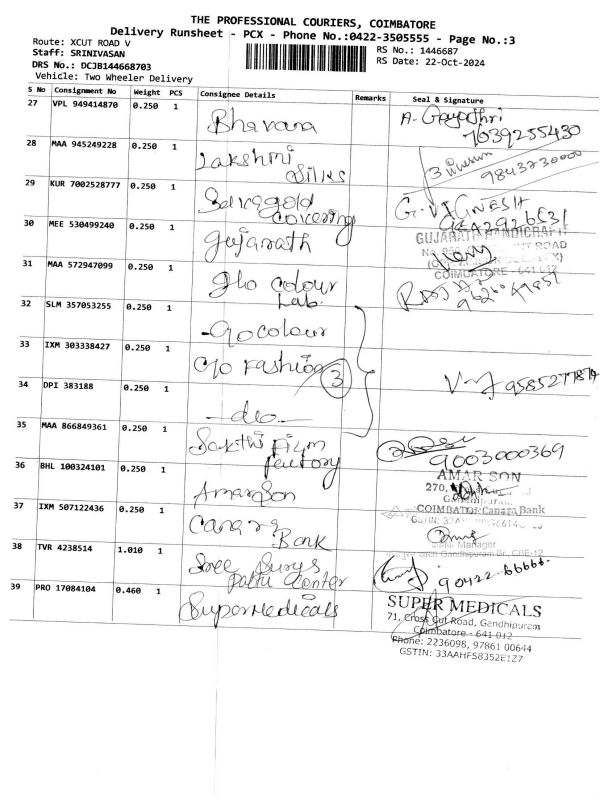 THE PROFESSIONAL COURIERS, COIMBATORE
Delivery Runsheet - PCX - Phone No.:0422-3505555 - Page No.:3
Route: XCUT ROAD V
RS No.: 1446687
Staff: SRINIVASAN
RS Date: 22-Oct-2024
DRS No.: DCJB144668703
Vehicle: Two Wheeler Delivery
S No Consignment No Weight PCS Consignee Details Remarks Seal & Signature
27 VPL 949414870 0.250 1 Bhavana A. Gayathri
7639255430
28 MAA 945249228 0.250 1 Lakshmi
Silks 9843730000
29 KUR 7002528777 0.250 1 Savagold
Covering G. VIGNESH
30 MEE 530499240 0.250 1 Gujarath GUJARATH HANDICRAFTS
CUT ROAD
COIMBATORE - 641 012
31 MAA 572947099 0.250 1 Glo Colour
Lab.
32 SLM 357053255 0.250 1 Go colour
33 IXM 303338427 0.250 1 Go Fashion
3
9585277874
34 DPI 383188 0.250 1 -do-
35 MAA 866849361 0.250 1 Sakthi Film
Factory 9003000369
36 BHL 100324101 0.250 1 Amarson AMAR SON
270,
Gandhipuram
COIMBATORE
GSTIN:
37 IXM 507122436 0.250 1 Canara
Bank Canara Bank
Manager
Gandhipuram Br., CBE-12
38 TVR 4238514 1.010 1 Sree Surys
Pattu Center 90422 66666.
39 PRO 17084104 0.460 1 Super Medicals SUPER MEDICALS
71, Cross Cut Road, Gandhipuram
Coimbatore - 641 012
Phone: 2236098, 97861 00644
GSTIN: 33AAHFS8352E1Z7